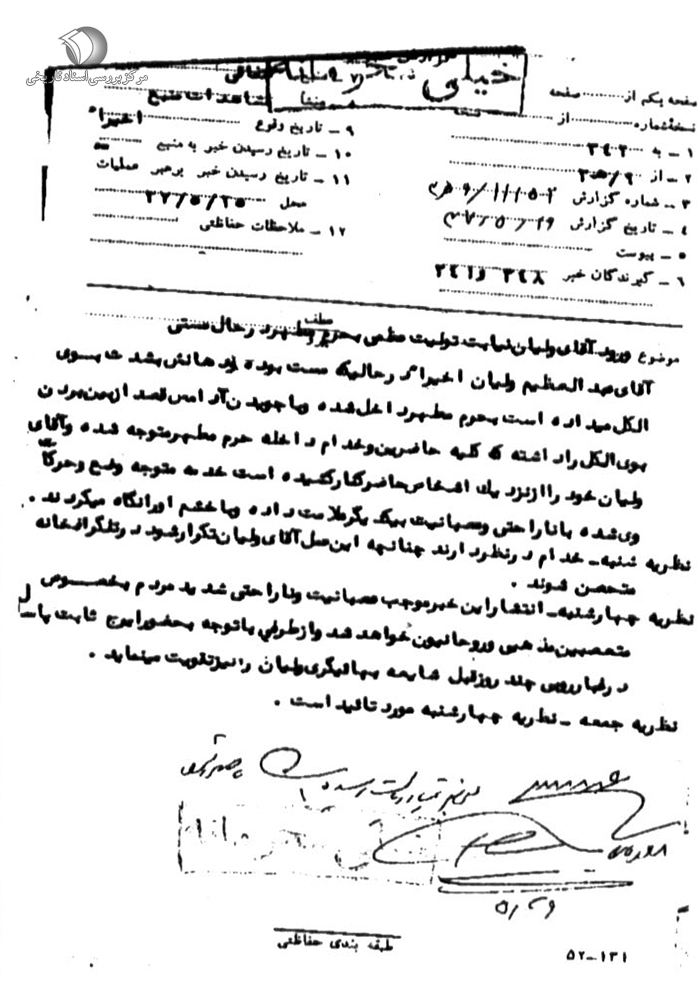 مرکز بررسی اسناد تاریخی
خیلی
صفحه یکم از صفحه
نسخه شماره از نسخه
۱ - به ۳۴۲
۲ - از ۹/ه۳
۳ - شماره گزارش
۴ - تاریخ گزارش ۳۷/۵/۲۹
۵ - پیوست
۶ - گیرندگان خبر ۳۴۸ و ۳۴۱
مشاهدات منبع
۹ - تاریخ وقوع اخیراً
۱۰ - تاریخ رسیدن خبر به منبع
۱۱ - تاریخ رسیدن خبر برهبر عملیات
محل ۳۷/۵/۲۵
۱۲ - ملاحظات حفاظتی
موضوع ورود آقای ولیان نیابت تولیت عظمی بحرم مطهر در حال مستی
آقای عبدالعظیم ولیان اخیراً در حالیکه مست بوده و از دهانش بشدت بوی
الکل میداده است بحرم مطهر داخل شده و با جویدن آدامس قصد از بین بردن
بوی الکل را داشته که کلیه حاضرین و خدام داخله حرم مطهر متوجه شده و آقای
ولیان خود را از نزد یک اشخاص حاضر کنار کشیده است خدمه متوجه وضع و حرکات
وی شده با ناراحتی و عصبانیت بیکدیگر علامت داده و با خشم او را نگاه میکردند .
نظریه شنبه - خدام در نظر دارند چنانچه این عمل آقای ولیان تکرار شود در تلگرافخانه
متحصن شوند .
نظریه چهارشنبه - انتشار این خبر موجب عصبانیت و ناراحتی شدید مردم بخصوص
متعصبین مذهبی و روحانیون خواهد شد و از طرفی با توجه بحضور ایرج ثابت پاسال
در رضا رویس چند روز قبل شایعه بهائیگری ولیان را نیز تقویت مینماید .
نظریه جمعه - نظریه چهارشنبه مورد تائید است .
۵/۲۹
طبقه بندی حفاظتی
۵۲-۱۳۱